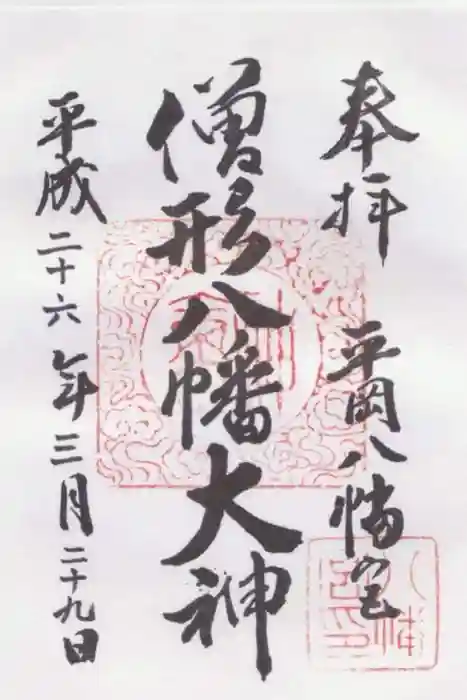 奉拝　平岡八幡宮
僧形八幡大神
平成二十六年三月二十九日